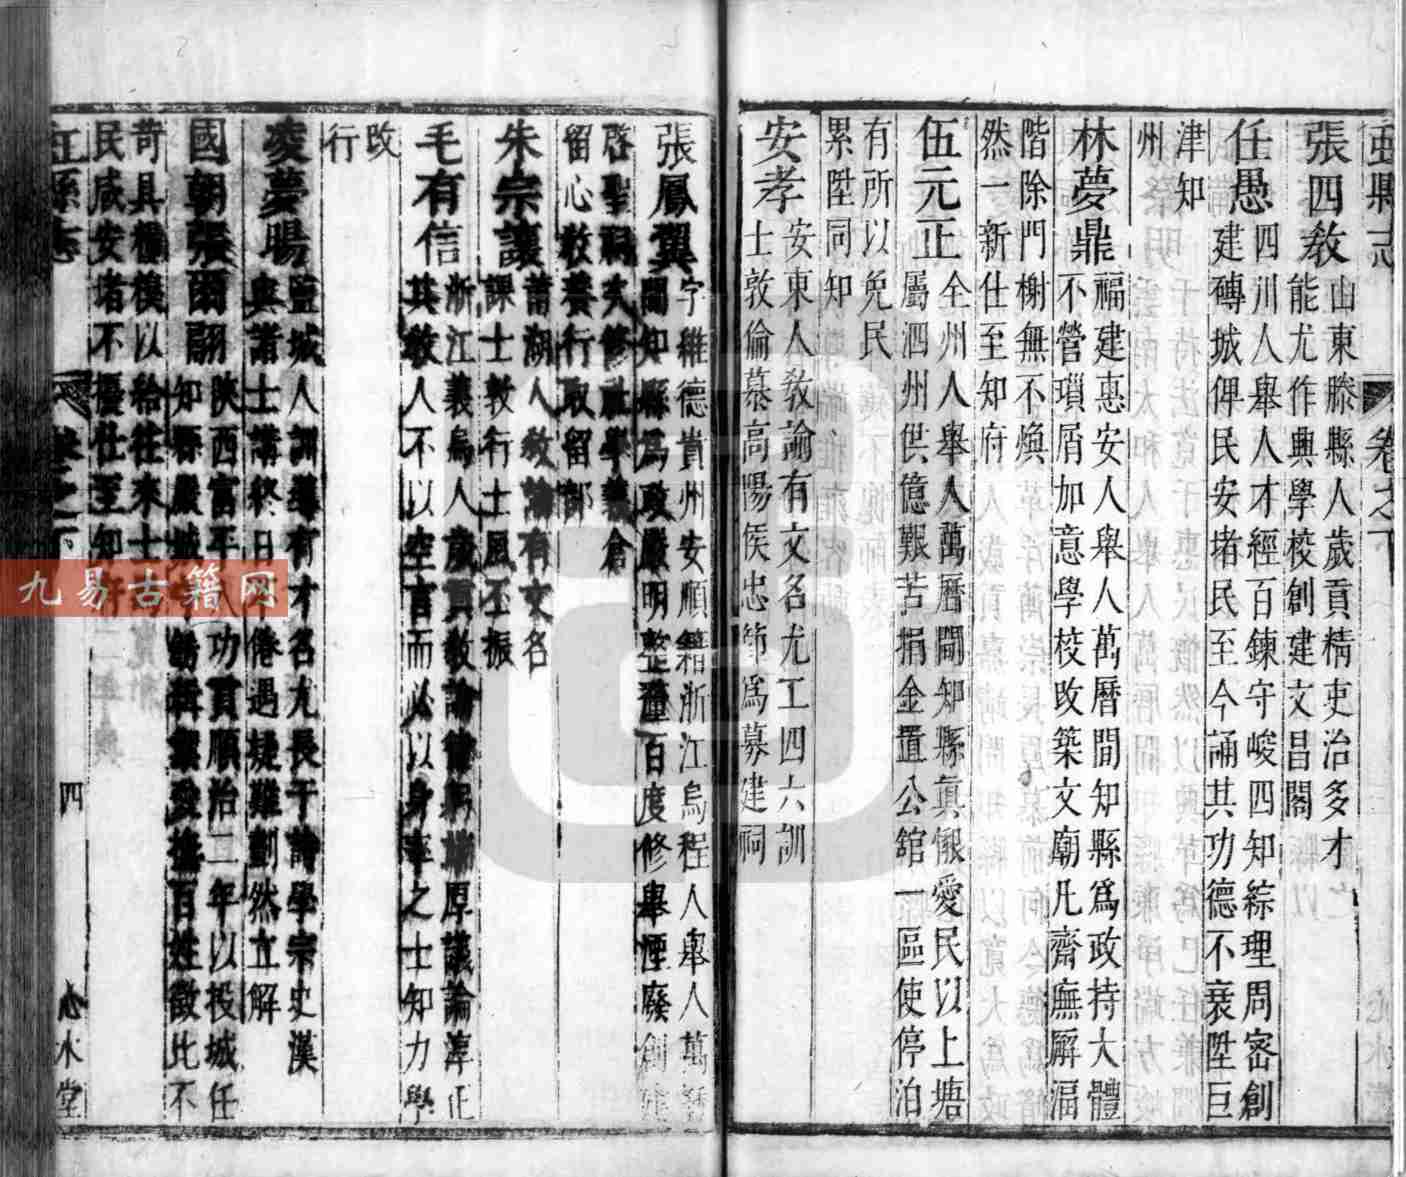 虹縣志
卷之下
張四教
山東滕縣人歲貢精吏治多才
能尤作興學校創建文昌閣
任愚
四川人舉人才經百鍊守峻四知綜理周密創
建磚城俾民安堵民至今誦其功德不衰陞巨
津知
州
林夢鼎
福建惠安人舉人萬曆間知縣爲政持大體
不營瑣屑加意學校改築文廟凡齋廡屏湢
階除門榭無不煥
然一新仕至知府
伍元正
全州人舉人萬曆間知縣眞慨愛民以上塘
屬泗州供億艱苦捐金置公舘一區使停泊
有所以免民
累陞同知
安孝
安東人教諭有文名尤工四六訓
士敦倫慕高陽侯忠節爲募建祠
張鳳翼
字維德貴州安順籍浙江烏程人舉人萬曆
間知縣爲政嚴明整肅百度修舉堙廢創建
啓聖祠大修社學義倉
留心教養行取留部
朱宗讓
蕭湖人教諭有文名
課士敦行士風丕振
毛有信
浙江義烏人歲貢教諭律躬端原議論淳正
其教人不以空言而必以身率之士知力學
改
行
凌夢暘
監城人訓導有才名尤長于詩學宗史漢
與諸士講終日不倦遇疑難劃然立解
國朝張爾翮
陝西富平人功貢順治二年以投城任
知縣嚴城守勤緝禦愛撫百姓徵比不
苛具樓櫓以給往來士
民咸安堵不擾仕至知府
虹縣志
卷之下
四
心水堂
九易古籍网